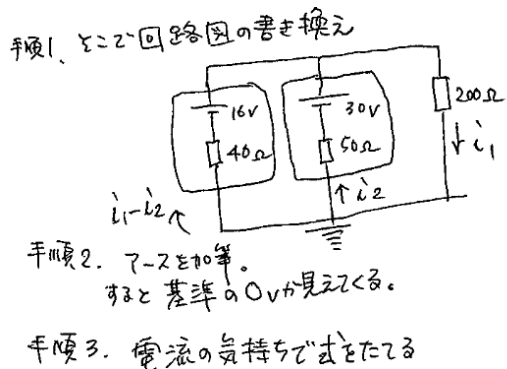 手順1、そこで回路図の書き換え
16V
30V
200Ω
40Ω
50Ω
↓i₁
i₁-i₂
↑i2
手順2. アースを加筆。
すると基準の0Vが見えてくる。
手順3. 電流の気持ちで式をたてる